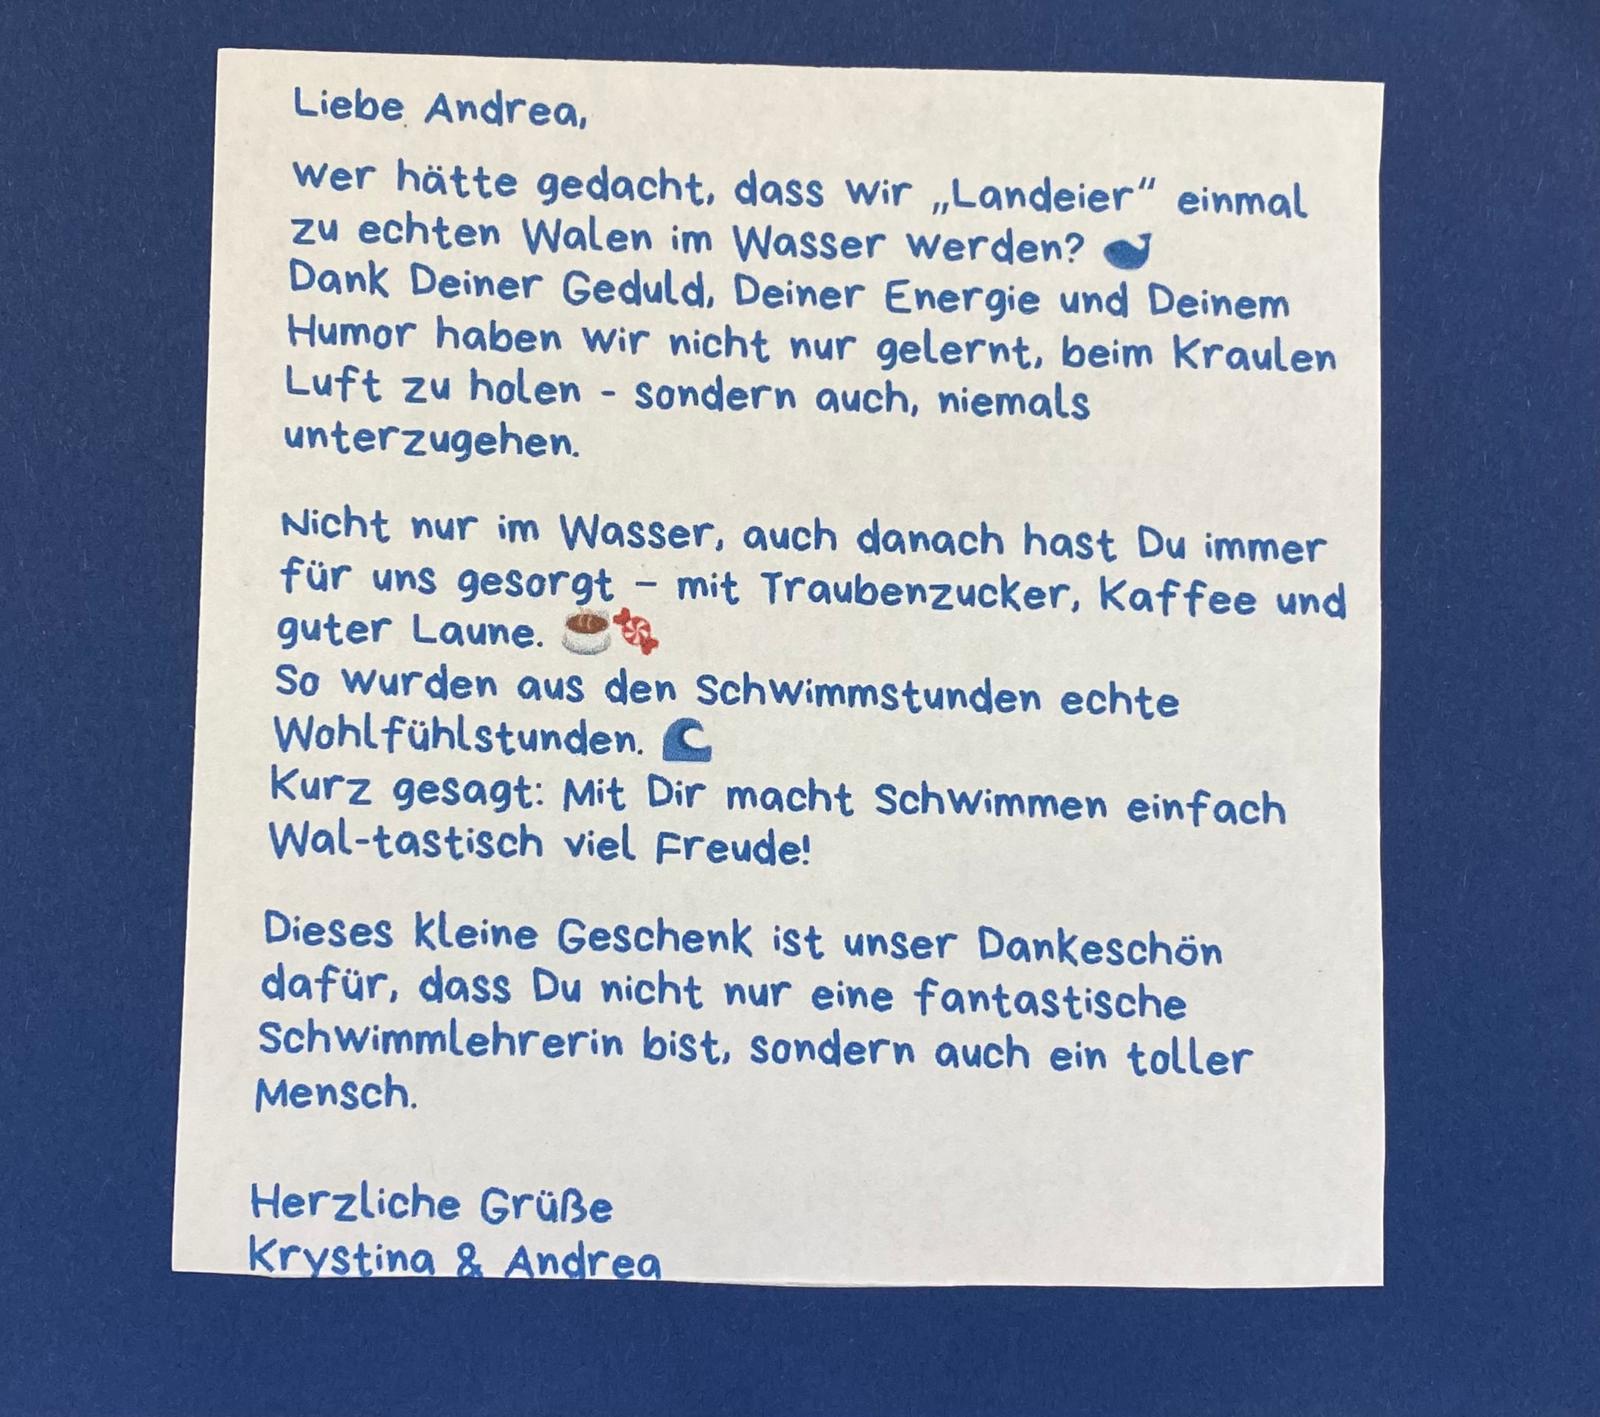 Liebe Andrea,
wer hätte gedacht, dass wir „Landeier“ einmal
zu echten Walen im Wasser werden? 🐋
Dank Deiner Geduld, Deiner Energie und Deinem
Humor haben wir nicht nur gelernt, beim Kraulen
Luft zu holen - sondern auch, niemals
unterzugehen.
Nicht nur im Wasser, auch danach hast Du immer
für uns gesorgt – mit Traubenzucker, Kaffee und
guter Laune. ☕🍬
So wurden aus den Schwimmstunden echte
Wohlfühlstunden. 🌊
Kurz gesagt: Mit Dir macht Schwimmen einfach
Wal-tastisch viel Freude!
Dieses kleine Geschenk ist unser Dankeschön
dafür, dass Du nicht nur eine fantastische
Schwimmlehrerin bist, sondern auch ein toller
Mensch.
Herzliche Grüße
Krystina & Andrea